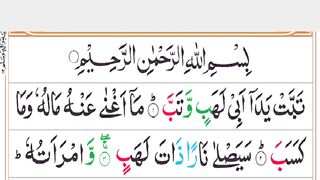 بِسْمِ اللهِ الرَّحْمٰنِ الرَّحِيْمِ
تَبَّتْ يَدَاۤ اَبِىْ لَهَبٍ وَّتَبَّ ؕ۝۱ مَاۤ اَغْنٰى عَنْهُ مَالُهٗ وَمَا
كَسَبَ ؕ۝۲ سَيَصْلٰى نَارًا ذَاتَ لَهَبٍ ۚۖ۝۳ وَّامْرَاَتُهٗ ؕ